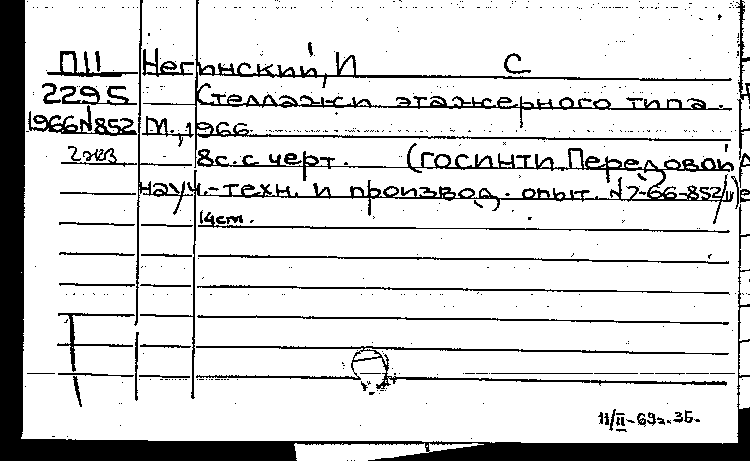 П11 Негинский, И С
2295 Стеллажи этажерного типа.
1966N852 М., 1966
2 экз. 8с. с черт. (ГОСИНТИ. Передовой
науч.-техн. и производ. опыт. N7-66-852/11)
14см.
11/II-69г. 35.